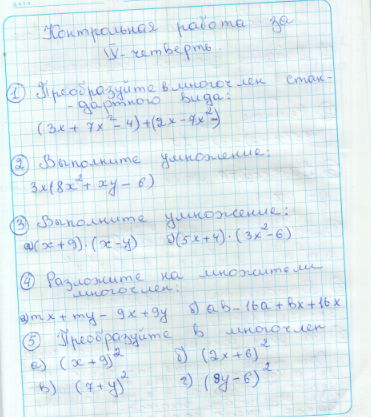 Контрольная работа за
IV-четверть.
① Преобразуйте в многочлен стан-
-дартного вида:
(3x + 7x² - 4) + (2x - 4x²-)
② Выполните умножение:
3x(8x² + xy - 6)
③ Выполните умножение:
а)(x+9)·(x-y) б)(5x+4)·(3x²-6)
④ Разложите на множители
многочлен:
а)mx + my - 9x + 9y б) ab - 16a + bx + 16x
⑤ Преобразуйте в многочлен
а) (x+9)² б) (2x+6)²
в) (7+y)² г) (8y-6)²